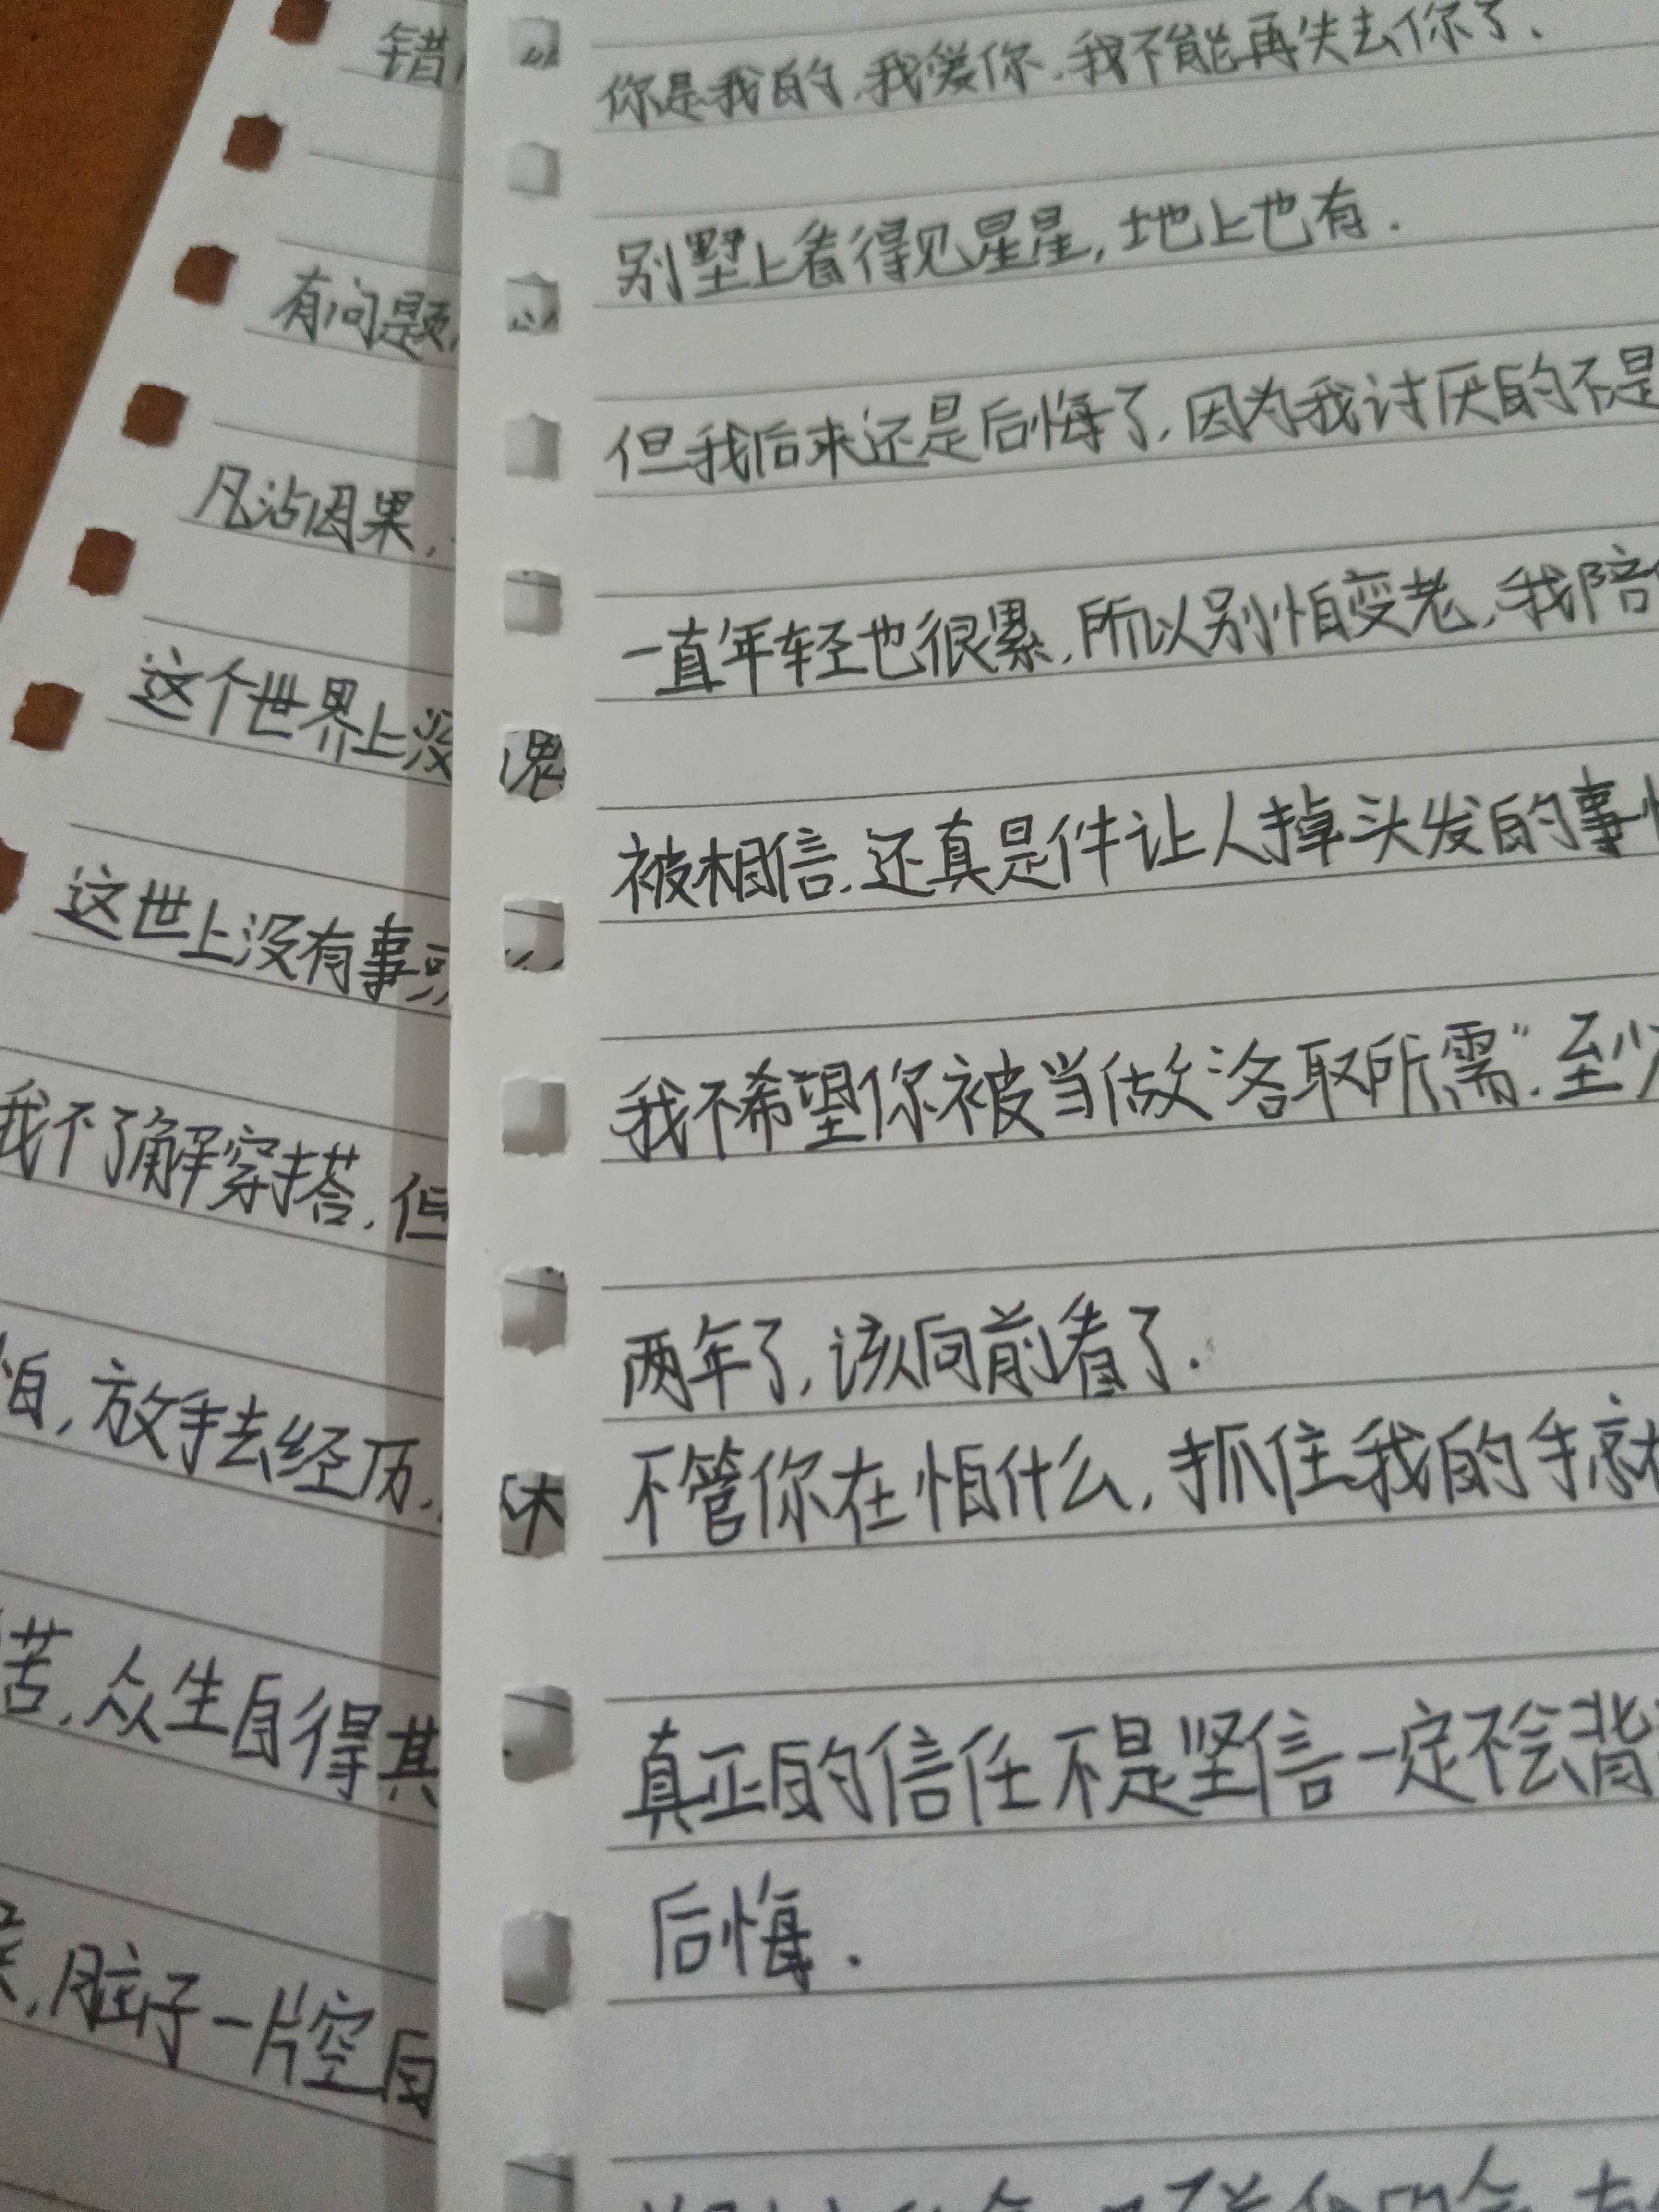 错
有问题
凡沾因果,
这个世界上没
这世上没有事
我不了解穿搭,但
怕,放手去经历,
苦,众生自得其
,脏子一片空白
你是我的,我爱你,我不能再失去你了、
别墅上看得见星星,地上也有.
但我后来还是后悔了,因为我讨厌的不是
一直年轻也很累,所以别怕变老,我陪
被相信,还真是件让人掉头发的事情
我不希望你被当做"各取所需",至少
两年了,该向前看了.
不管你在怕什么,抓住我的手就
真正的信任不是坚信一定不会背
后悔.